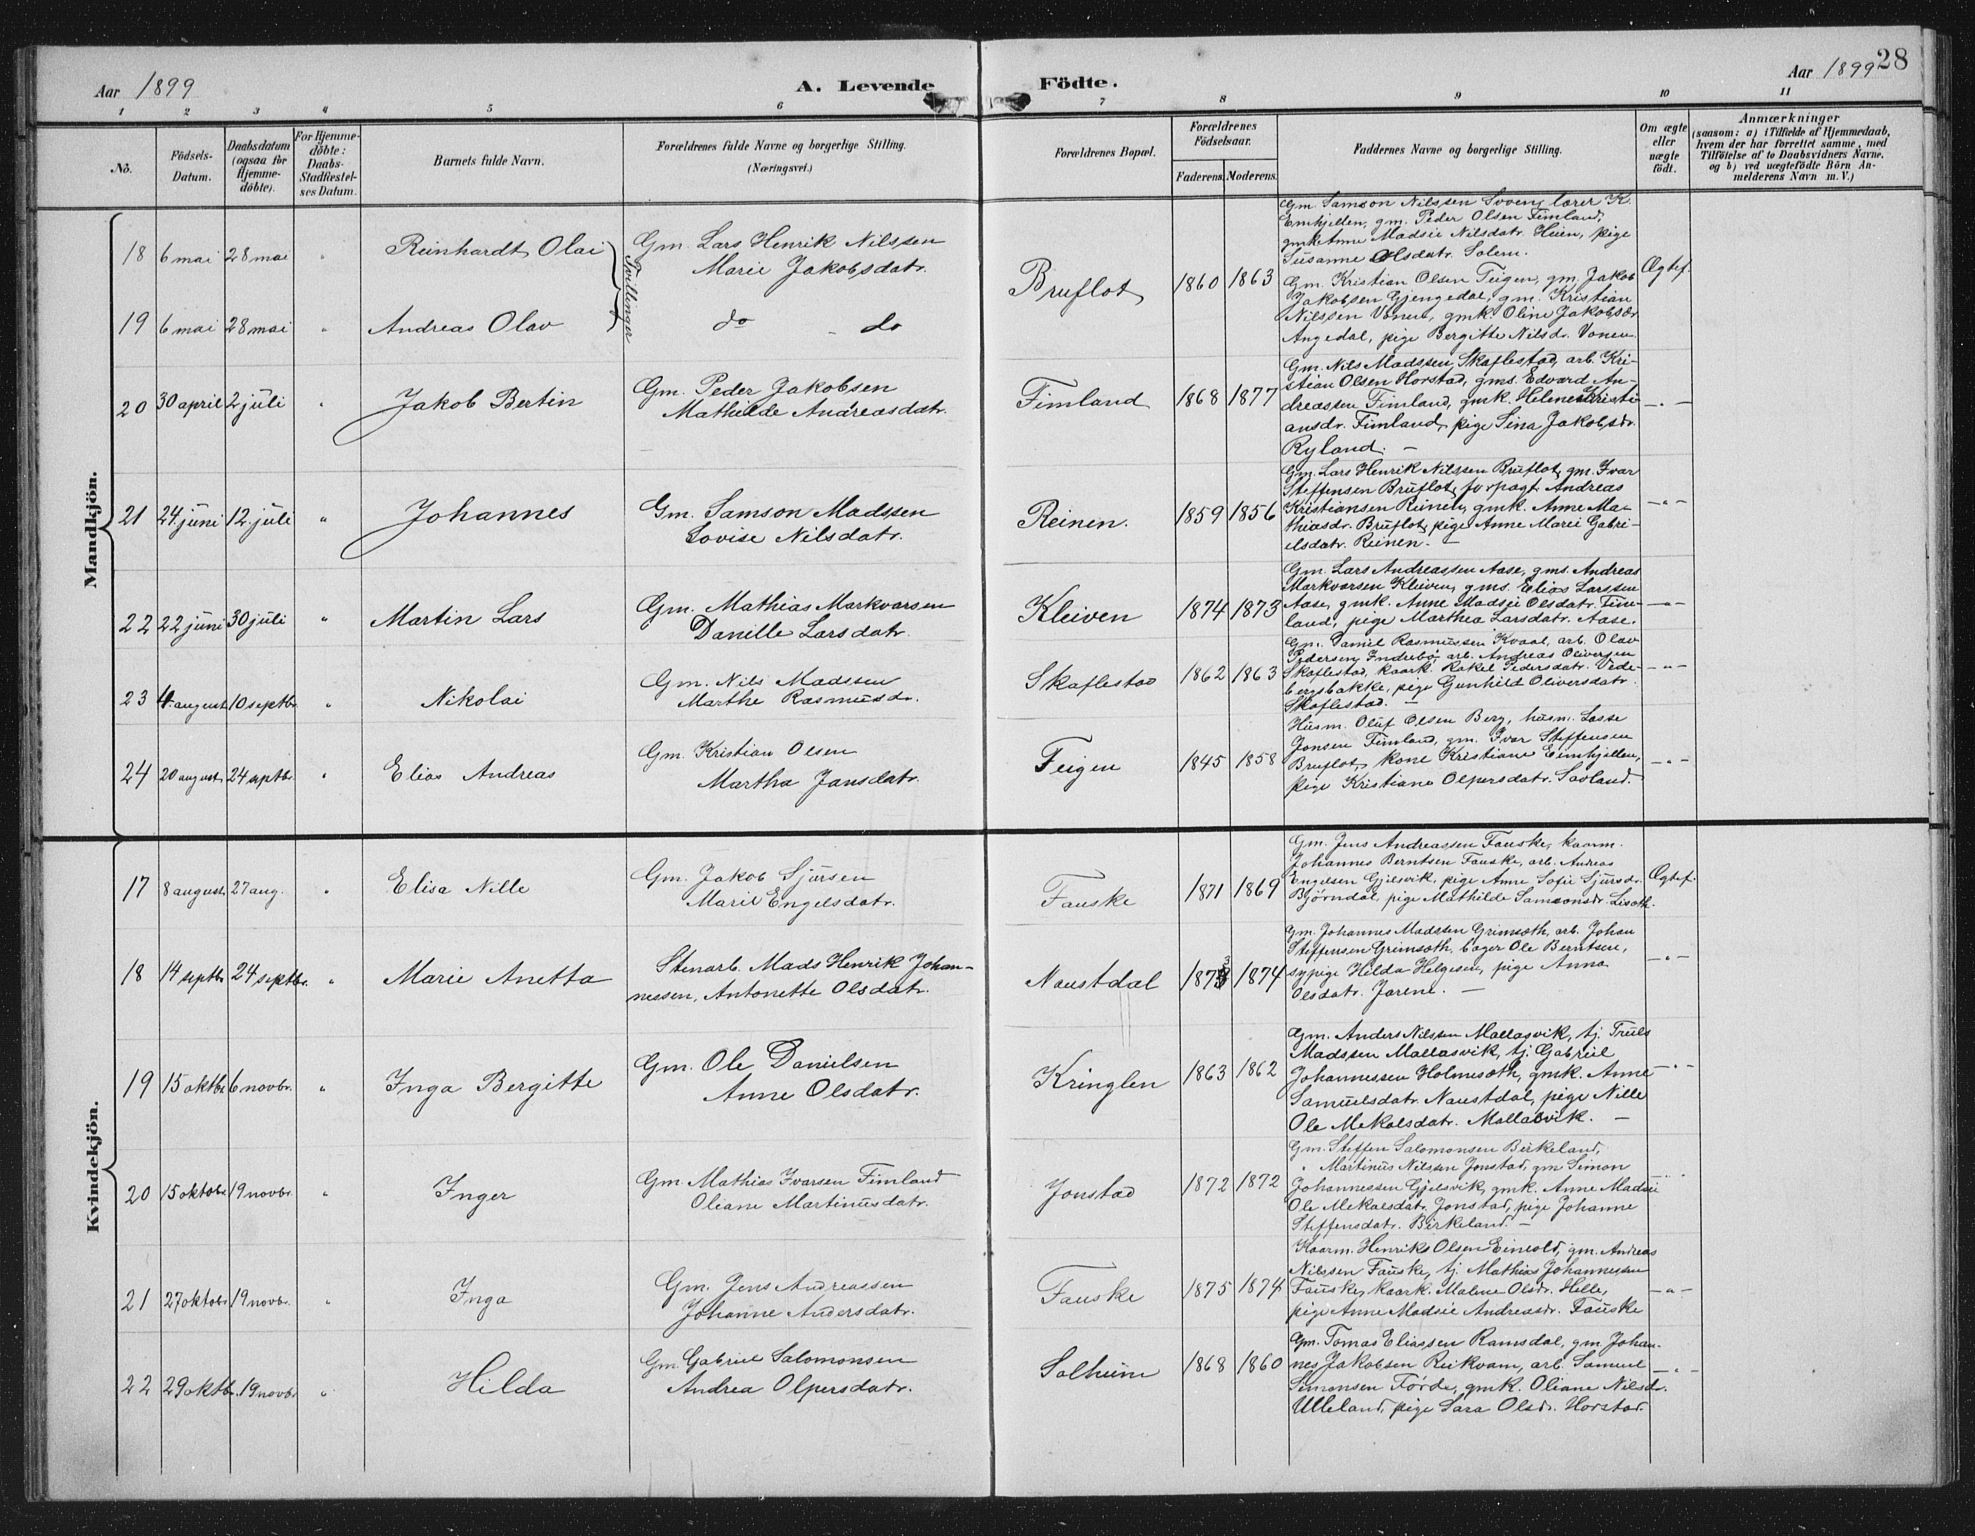 Aar 1899
A. Levende Födte.
Aar 1899
28
1 2 3 4 5 6 7 8 9 10 11
No.
Födsels-Datum.
Daabsdatum (ogsaa för Hjemme-döbte).
For Hjemme-döbte: Daabs-Stadfæstel-ses Datum.
Barnets fulde Navn.
Forældrenes fulde Navne og borgerlige Stilling.
(Næringsvei.)
Forældrenes Bopæl.
Forældrenes Födselsaar.
Faderens. Moderens.
Faddernes Navne og borgerlige Stilling.
Om ægte eller uægte födt.
Anmærkninger
(saasom: a) i Tilfælde af Hjemmedaab,
hvem der har forrettet samme, med
Tilföielse af to Daabsvidners Navne,
og b) ved uægtefödte Börn An-
melderens Navn m. V.)
Mandkjön.
18 6 mai 28 mai " Reinhardt Olai
Tvillinger
Gm. Lars Henrik Nilssen
Marie Jakobsdatr.
Bruflot 1860 1863
Gm. Samson Nilssen Svoen, lærer K.
Emhjellen, gm. Peder Olsen Fimland,
gmk Anne Madsie Nilsdatr. Heien, pige
Susanne Olsdatr. Solem.
Ægtef.
19 6 mai 28 mai " Andreas Olav
do - do
Gm. Kristian Olsen Teigen, gm. Jakob
Jakobsen Gjengedal, gm. Kristian
Nilssen Vonen, gmk. Oline Jakobsdr.
Angedal, pige Bergitte Nilsdr. Vonen
20 30 april 2 juli " Jakob Bertin
Gm. Peder Jakobsen
Mathilde Andreasdatr.
Fimland 1868 1877
Gm. Nils Madssen Skaflestad, arb. Kri-
stian Olsen Horstad, gms. Edvard An-
dreassen Fimland, gmk. Helene Kristi-
ansdr. Fimland, pige Sina Jakobsdr.
Ryland. -
-"-
21 24 juni 12 juli " Johannes
Gm. Samson Madssen
Lovise Nilsdatr.
Reinen. 1859 1856
Gm. Lars Henrik Nilssen Bruflot, gm. Ivar
Steffensen Bruflot, forpagt. Andreas
Kristiansen Reinen, gmk. Anne Ma-
thiasdr. Bruflot, pige Anne Marie Gabri-
elsdatr. Reinen. -
-"-
22 22 juni 30 juli " Martin Lars
Gm. Mathias Markvarsen
Danille Larsdatr.
Kleiven 1874 1873
Gm. Lars Andreassen Aase, gms. Andreas
Markvarsen Kleiven, gms. Elias Larssen
Aase, gmk. Anne Madsie Olsdatr. Fim-
land, pige Marthea Larsdatr. Aase.
-"-
23 4. august 10 septbr. " Nikolai
Gm. Nils Madssen
Marthe Rasmusdr.
Skaflestad 1862 1863
Gm. Daniel Rasmussen Kvaal, arb. Olav
Pedersen Indrebø, arb. Andreas Oliversen
Skaflestad, kaark. Rakel Pedersdatr. Vide-
bergsbakke, pige Gunhild Oliversdatr.
Skaflestad. -
-"-
24 20 august 24 septbr. " Elias Andreas
Gm. Kristian Olsen
Martha Jansdatr.
Teigen 1845 1858
Husm. Oluf Olsen Berg, husm. Lasse
Jonsen Fimland, gm. Ivar Steffensen
Bruflot, kone Kristiane Eimhjellen,
pige Kristiane Olpersdatr. Savland.
-"-
Kvindekjön.
17 8 august. 27 aug. " Elisa Nille
Gm. Jakob Sjursen
Marie Engelsdatr.
Fauske 1871 1869
Gm. Jens Andreassen Fauske, kaarm.
Johannes Berntsen Fauske, arb. Andreas
Engelsen Gjelsvik, pige Anne Sofie Sjursdr.
Bjørndal, pige Mathilde Samsonsdr. Lisoth.
Ægtef.
18 14 septbr. 24 septbr. " Marie Anetta
Stenarb. Mads Henrik Johan-
nessen, Antonette Olsdatr.
Naustdal 1873 1874
Gm. Johannes Madssen Grimsoth, arb. Johan
Steffensen Grimsoth, bager Ole Berntsen,
sypige Hilda Helgesen, pige Anna
Olsdatr. Jarene. -
-"-
19 15 oktbr. 6 novbr. " Inga Bergitte
Gm. Ole Danielsen
Anne Olsdatr.
Kringlen 1863 1862
Gm. Anders Nilssen Mallasvik, tj. Truls
Madssen Mallasvik, tj. Gabriel
Johannessen Holmesoth, gmk. Anne
Samuelsdatr. Naustdal, pige Nille
Ole Mekalsdatr. Mallasvik. -
-"-
20 15 oktobr. 19 novbr. " Inger
Gm. Mathias Ivarsen Fimland
Oliane Martinusdatr.
Jonstad 1872 1872
Gm. Steffen Salomonsen Birkeland,
" Martinus Nilssen Jonstad, gm Simon
Johannessen Gjelsvik, gmk. Anne Madsie
Ole Mekalsdatr. Jonstad, pige Johanne
Steffensdatr. Birkeland. -
21 27 oktobr. 19 novbr. " Inga
Gm. Jens Andreassen
Johanne Andersdatr.
Fauske 1875 1874
Kaarm. Henriks Olsen Einevold, gm. Andreas
Nilssen Fauske, tj. Mathias Johannessen
Fauske, kaark. Malene Olsdr. Helle,
pige Anne Madsie Andreasdr. Fauske
-"-
22 29 oktbr. 19 novbr. " Hilda
Gm. Gabriel Salomonsen
Andrea Olpersdatr.
Solheim 1868 1860
Gm. Tomas Eliassen Ramsdal, gm Johan-
nes Jakobsen Reikvam, arb. Samuel
Simonsen Førde, gmk. Oliane Nilsdr.
Ulleland, pige Sara Olsdr. Horstad.
-"-